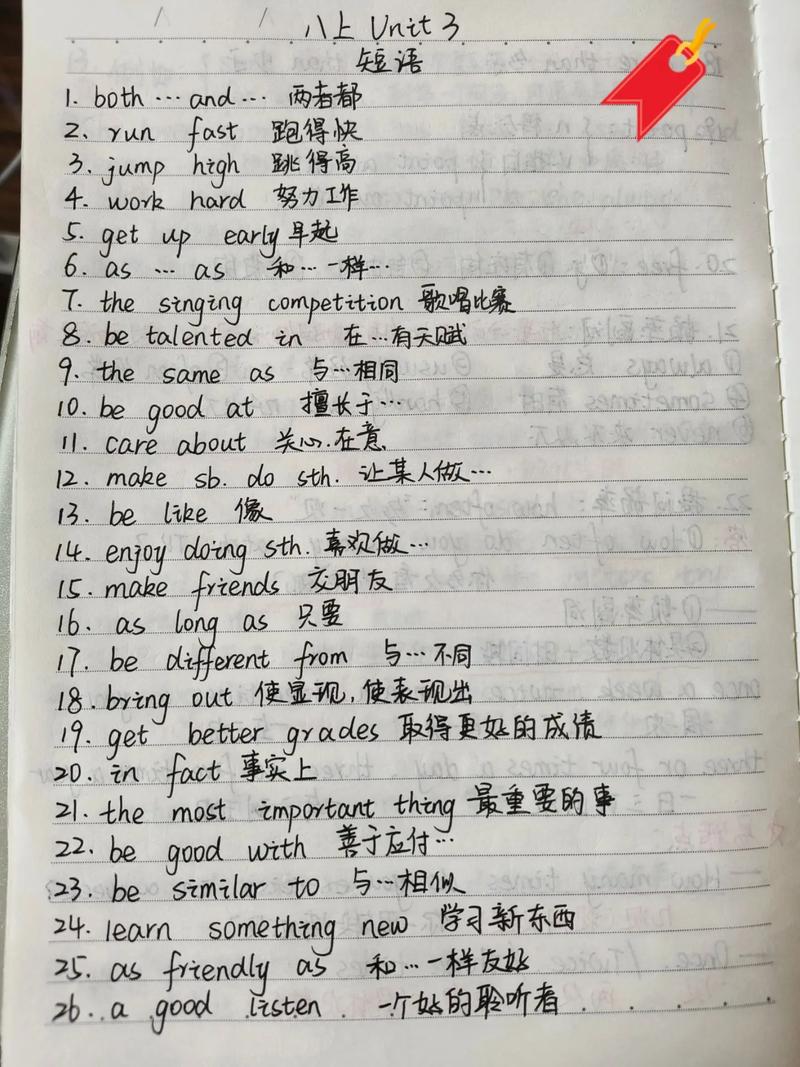 八上 Unit 3
短语
1. both … and … 两者都
2. run fast 跑得快
3. jump high 跳得高
4. work hard 努力工作
5. get up early 早起
6. as … as 和…一样…
7. the singing competition 歌唱比赛
8. be talented in 在…有天赋
9. the same as 与…相同
10. be good at 擅长于…
11. care about 关心.在意
12. make sb. do sth. 让某人做…
13. be like 像
14. enjoy doing sth. 喜欢做…
15. make friends 交朋友
16. as long as 只要
17. be different from 与…不同
18. bring out 使显现,使表现出
19. get better grades 取得更好的成绩
20. in fact 事实上
21. the most important thing 最重要的事
22. be good with 善于应付…
23. be similar to 与…相似
24. learn something new 学习新东西
25. as friendly as 和…一样友好
26. a good listen 一个好的聆听者